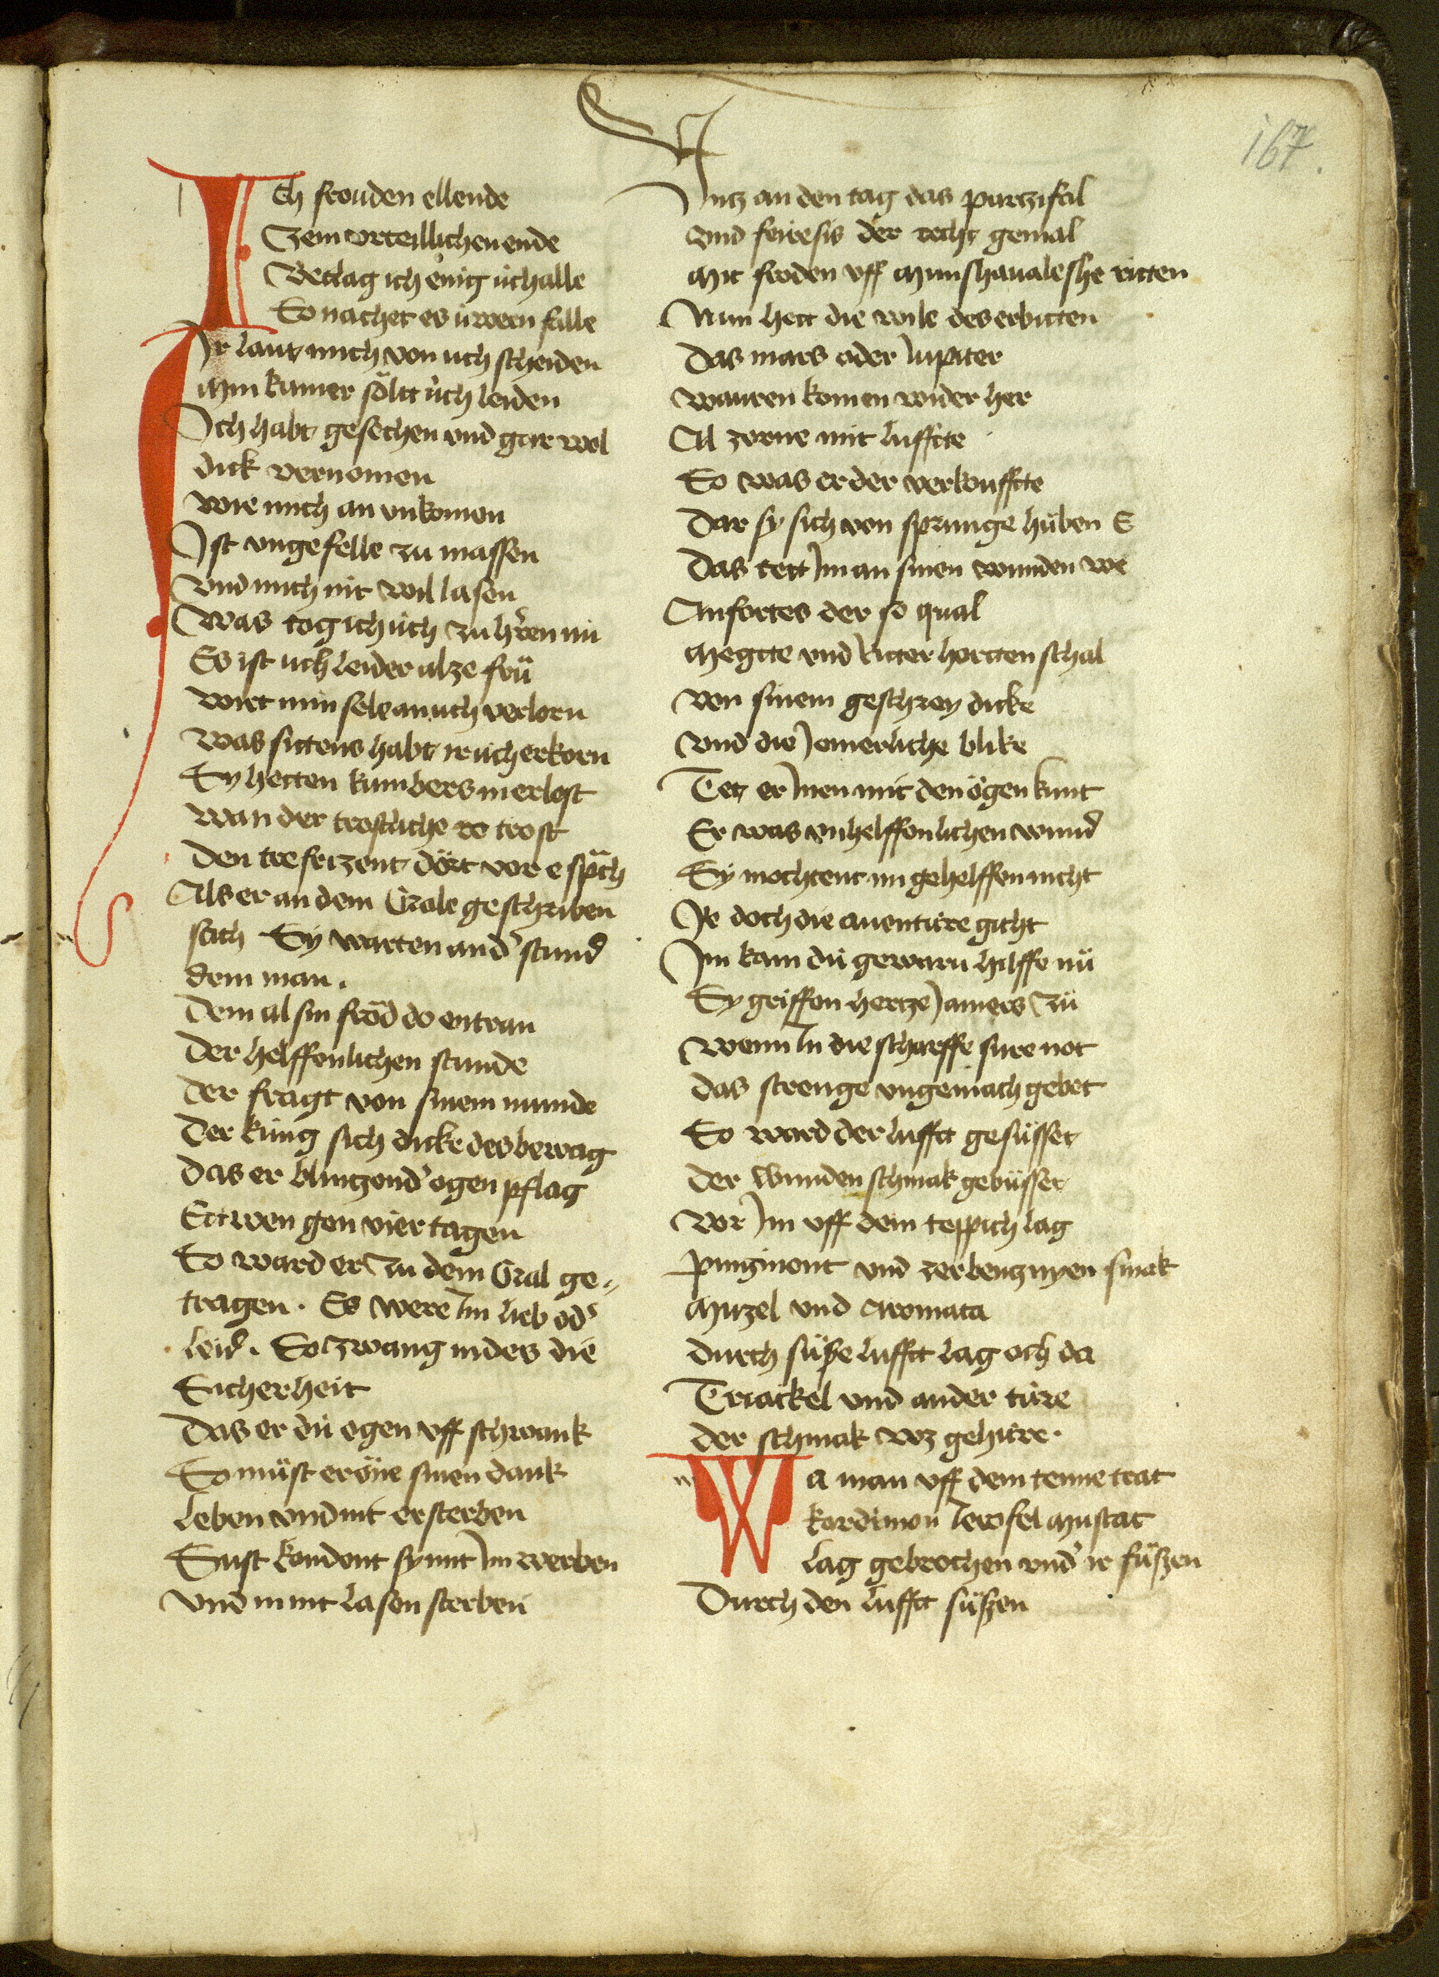 167.
Ich frouden ellende
Zem vrteillichen ende
Beclag ich einig üch alle
So nachet es üwern falle
Ir laut mich von üch scheiden
Min kumer sölt üch leiden
Ich habt gesechen vnd gar wol
dick vernomen
wie mich an vnkomen
Ist vngefelle zu massen
vnd mich nit wil lasen
Was tog ich üch zu hren nü
Es ist üch leider alze frü
wirt min sele an üch verlorn
was sittens habt ir üch erkorn
Sy hetten kumbers in erlost
wan der trostliche to trost
Den trefrizent dört vor e sprach
Als er an dem Grale geschriben
sach Sy warten and' stund
dem man.
Dem al sin fröd do entran
Der helffenlichen stunde
der fragt von sinem munde
Der küng sich dicke des bewag
Das er blinzond' ogen pflag
Ettwen gon vier tagen
So ward er zu dem Gral ge-
tragen. Es were im lieb od'
leid. So zwang in des die
Sicherheit
Das er dü ogen vff schwank
So müst er öne sinen dank
leben vnd nit ersterben
Sust kondont sy mit im werben
vnd in nit lasen sterben
Vntz an den tag das partzifal
vnd feirefis der recht gemal
Mit froden vff Munshaualeshe ritten
Nun hett die wile des erbitten
Das mars oder Iupiter
wauren komen wider her
Al zorne mit luffte
So was er der verkouffte
Dar sy sich von sprunge hüben E
Das tett im an sinen wunden we
Anfortes der so qual
Megtte vnd ritter hortten schal
von sinem geschrey dicke
vnd die iomerliche blike
Tet er inen mit den ögen kunt
Er was vnhelffenlichen wund
Sy mochtent im gehelffen nicht
Je doch die auenture gicht
Im kam dü gewarn hilffe nü
Sy griffen hertze iamers zü
wenn in die scharffe sure not
das strenge vngemach gebot
So ward der lufft gesüsset
der wunden schmak gebüsset
vor im vff dem teppich lag
pingmont vnd zerbenzinyen smak
Muzel vnd aromata
durch süße lufft lag och da
Triackel vnd ander türe
der schmak wz gehüre.
Wa man vff dem tenne trat
kordimon iewfel Mustat
lag gebrochen vnd' ir füßen
Durch den lufft süßen